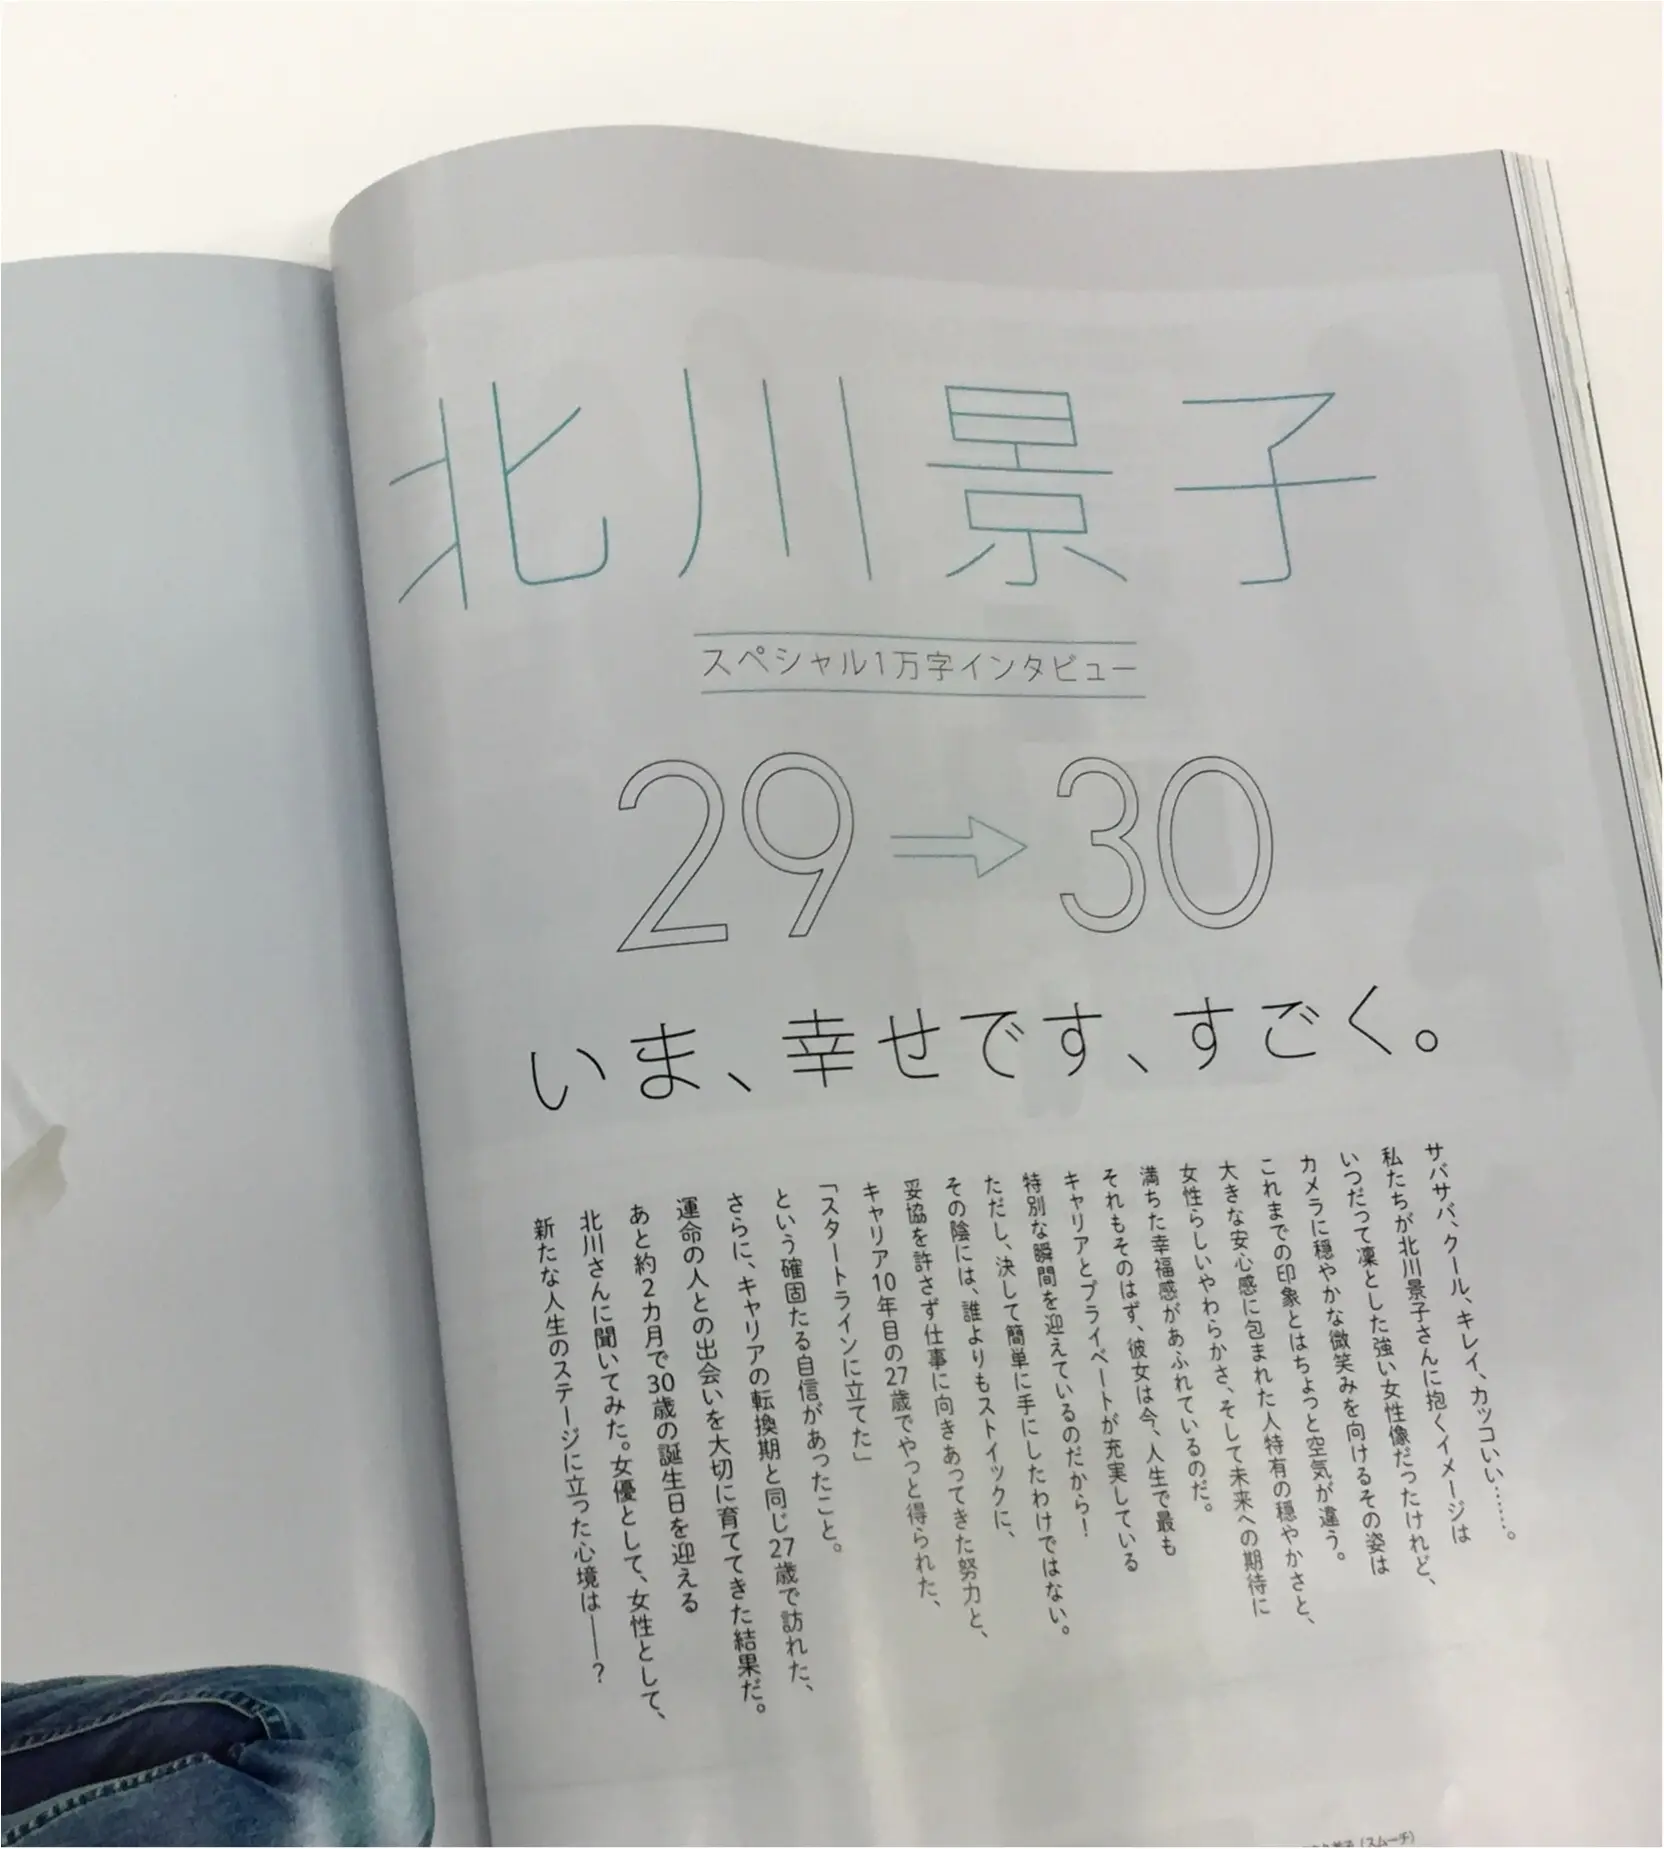 北川景子
スペシャル1万字インタビュー
29→30
いま、幸せです、すごく。
サバサバ、クール、キレイ、カッコいい……。
私たちが北川景子さんに抱くイメージは
いつだって凜とした強い女性像だったけれど、
カメラに穏やかな微笑みを向けるその姿は
これまでの印象とはちょっと空気が違う。
大きな安心感に包まれた人特有の穏やかさと、
女性らしいやわらかさ、そして未来への期待に
満ちた幸福感があふれているのだ。
それもそのはず、彼女は今、人生で最も
キャリアとプライベートが充実している
特別な瞬間を迎えているのだから！
ただし、決して簡単に手にしたわけではない。
その陰には、誰よりもストイックに、
妥協を許さず仕事に向きあってきた努力と、
キャリア10年目の27歳でやっと得られた、
「スタートラインに立てた」
という確固たる自信があったこと。
さらに、キャリアの転換期と同じ27歳で訪れた、
運命の人との出会いを大切に育ててきた結果だ。
あと約2カ月で30歳の誕生日を迎える
北川さんに聞いてみた。女優として、女性として、
新たな人生のステージに立った心境は——？
（スムーチ）